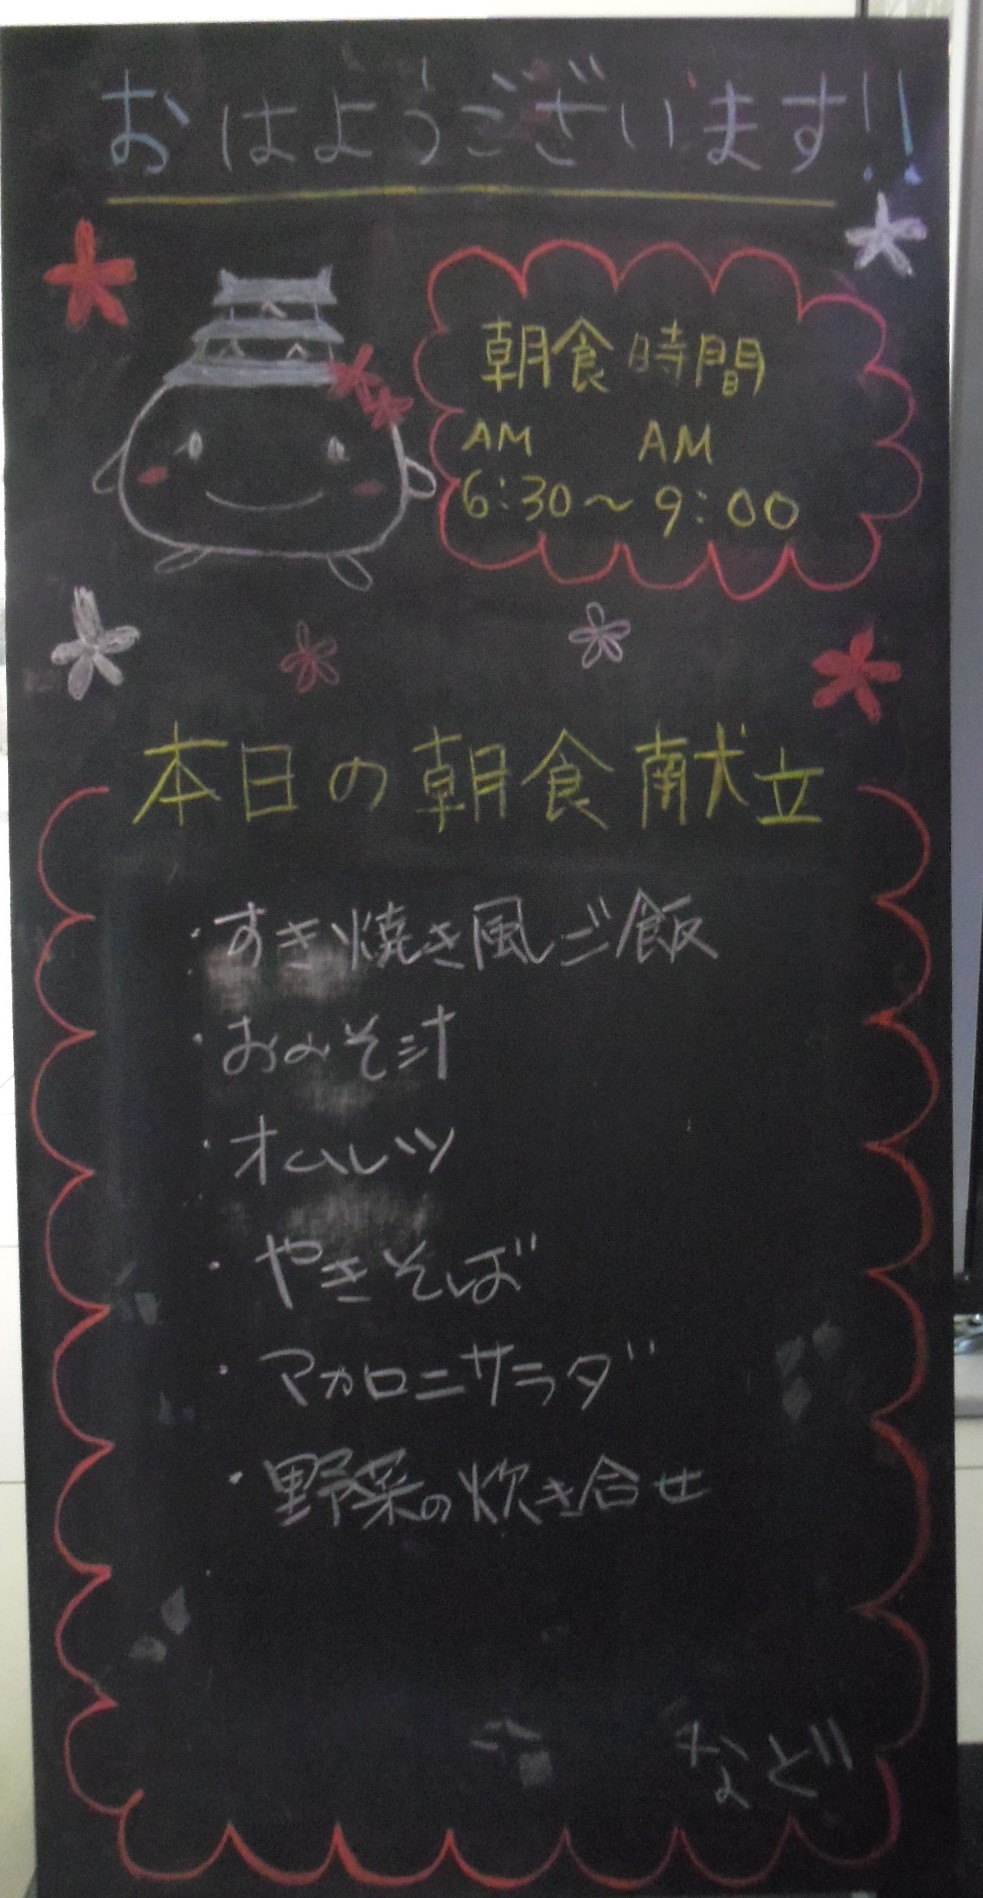 おはようございます!!
朝食時間
AM AM
6:30〜9:00
本日の朝食献立
・すき焼き風ご飯
・おみそ汁
・オムレツ
・やきそば
・マカロニサラダ
・野菜の炊き合せ
など